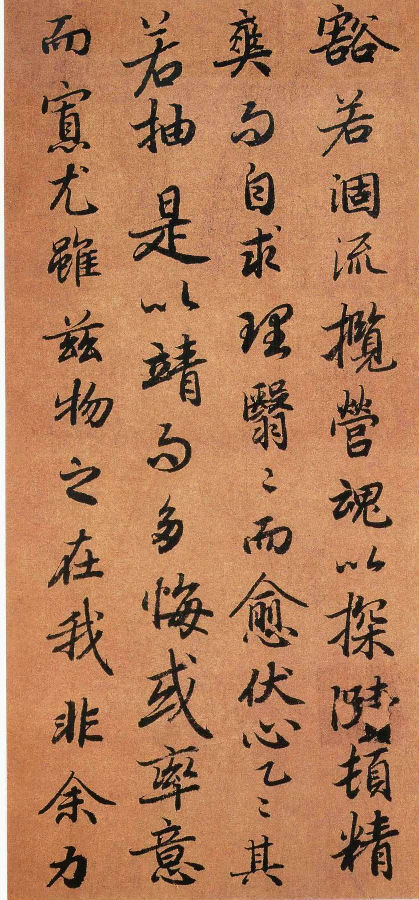 豁若涸流攬營魂以探頓精
爽而自求理翳〻而愈伏心乙〻其
若抽是以靖而多悔或率意
而寡尤雖茲物之在我非余力